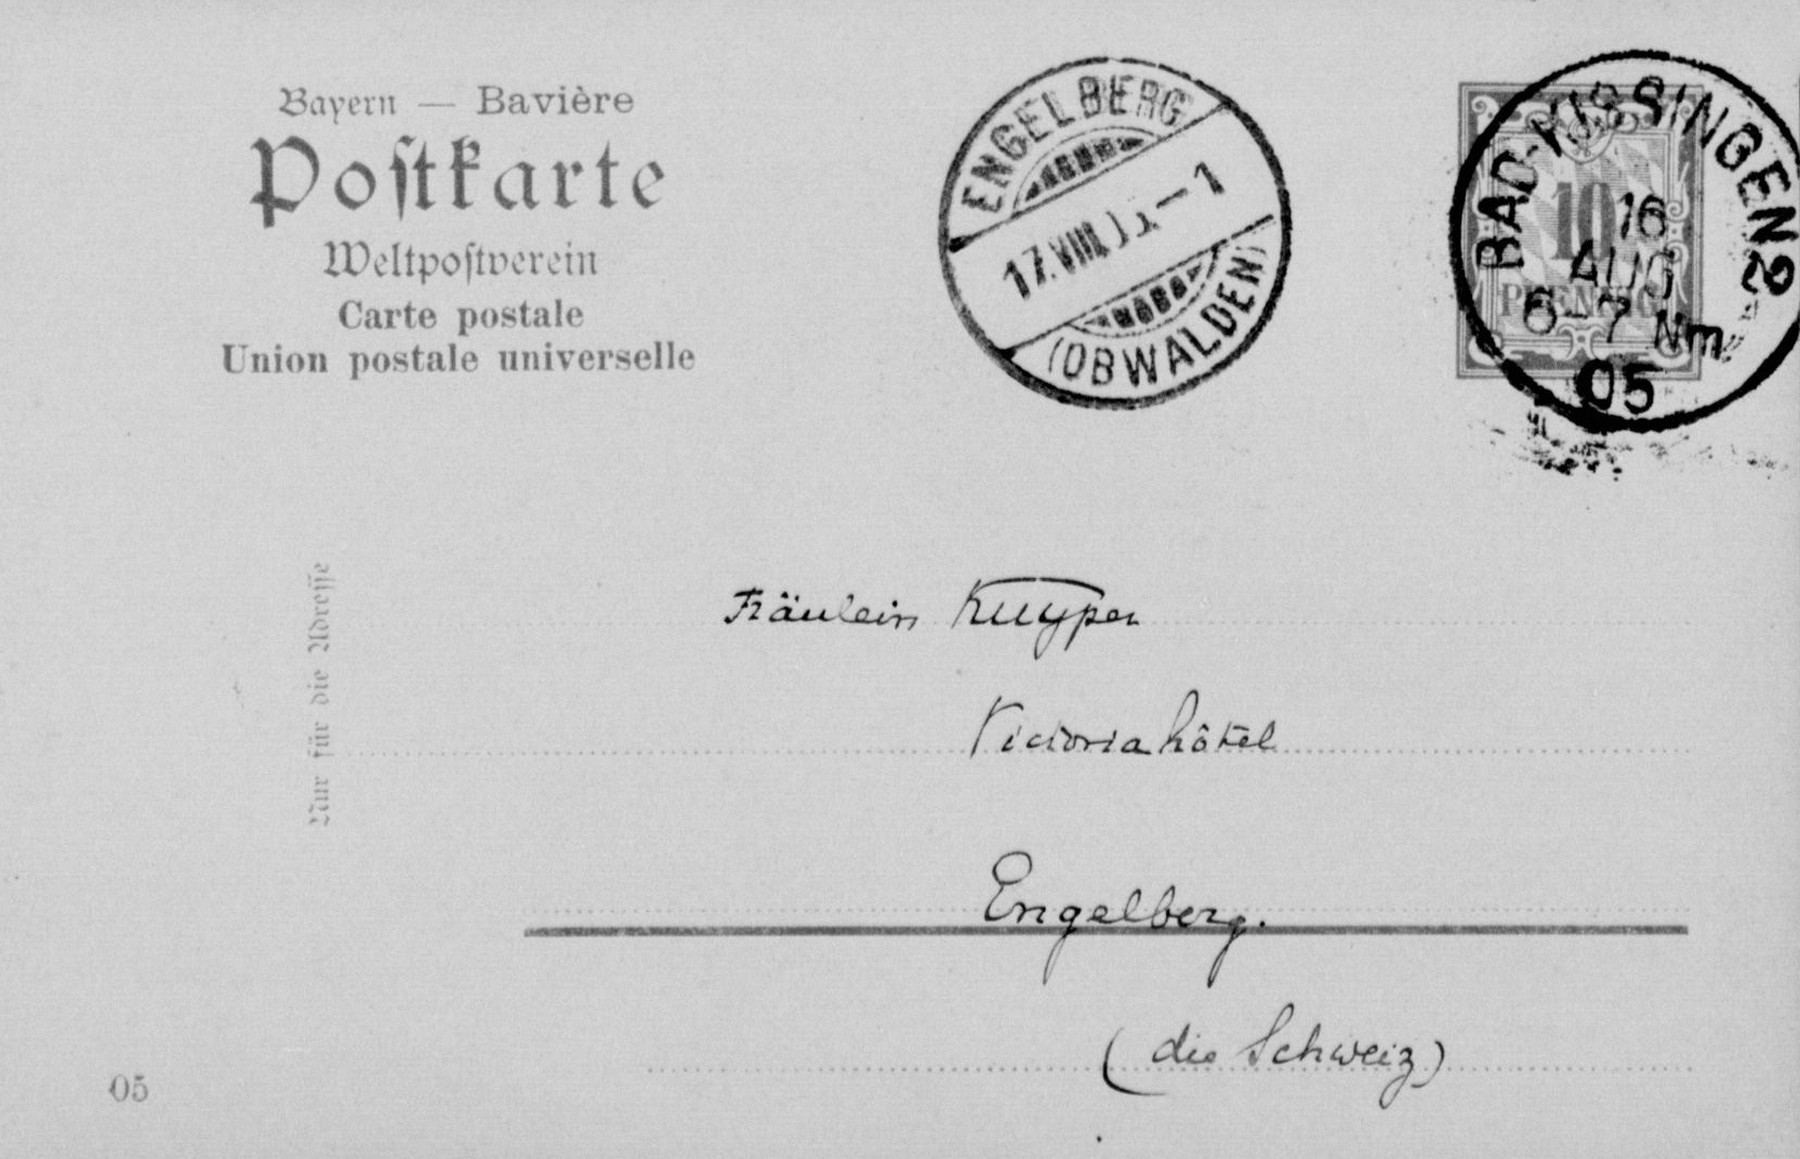 Bayern — Bavière
Postkarte
Weltpostverein
Carte postale
Union postale universelle
ENGELBERG
17.VIII.05.—1
(OBWALDEN)
BAD-KISSINGEN 2
16
AUG
6-7 Nm
05
10
PFENNIG
Nur für die Adresse
Fräulein Kuyper
Victoriahôtel
Engelberg.
(die Schweiz)
05